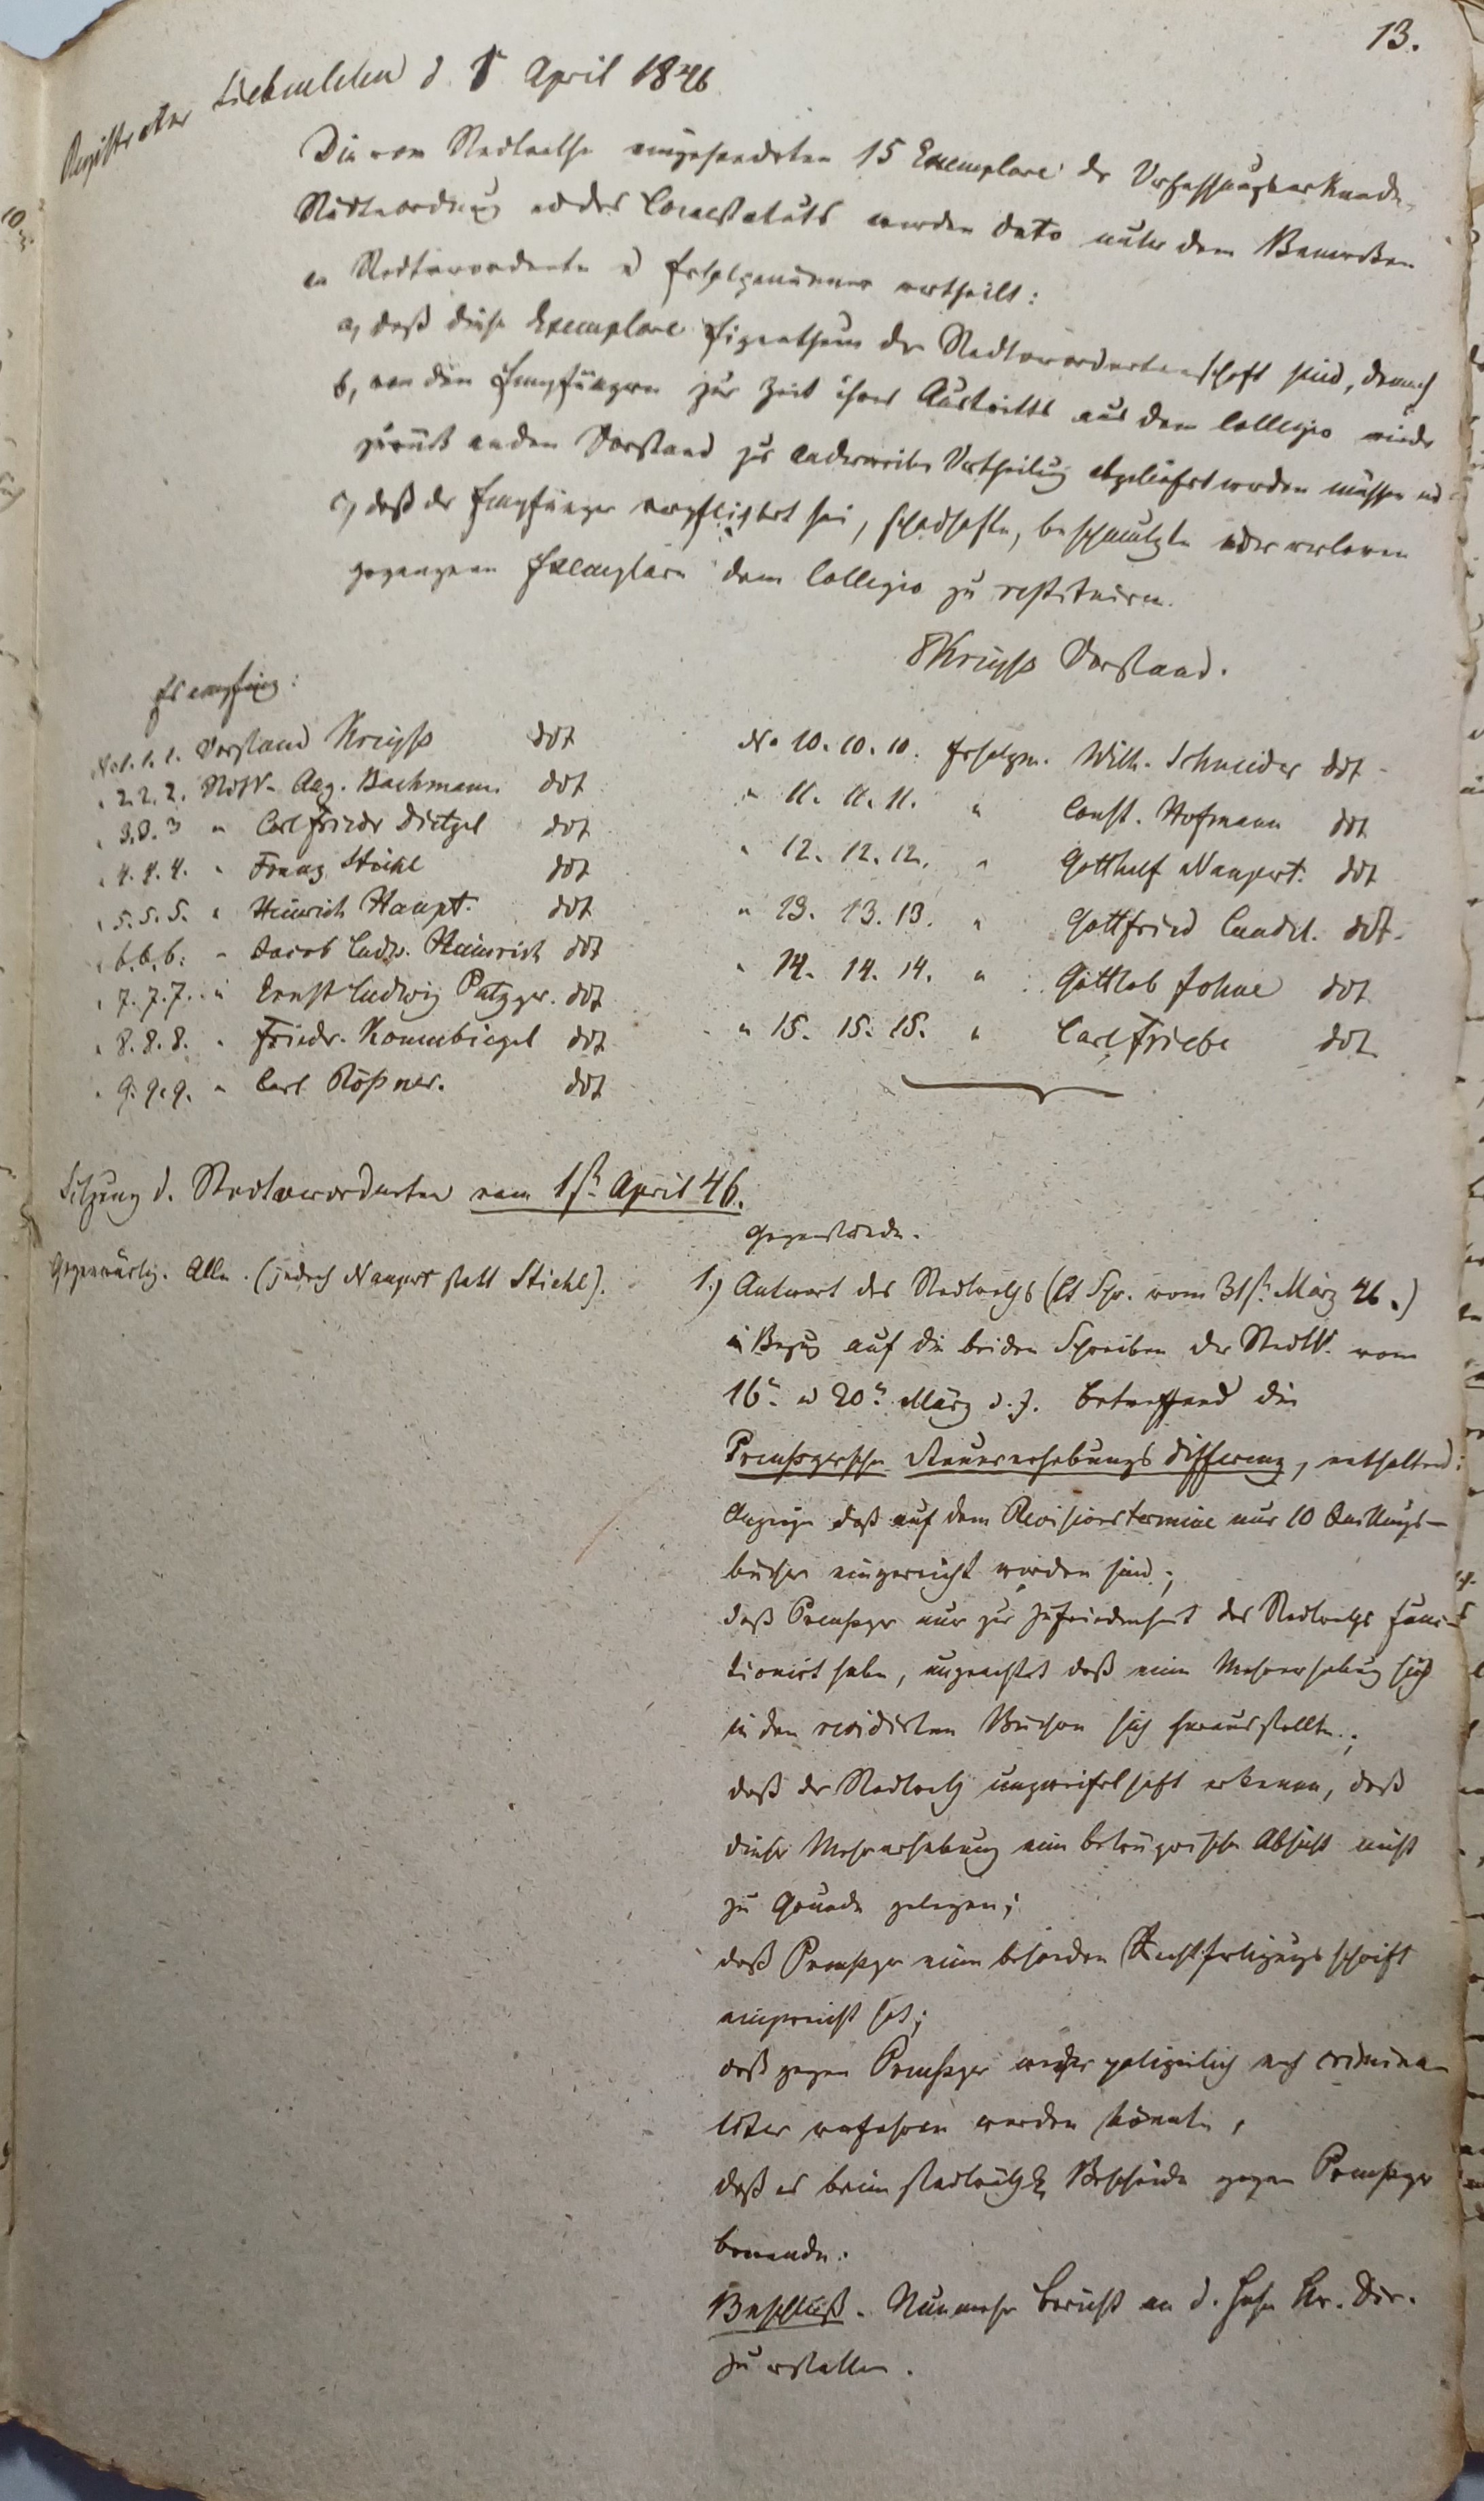 13.
Registratur Siebenlehn d. 1 April 1846
Die vom Stadtrathe eingesendeten 15 Exemplare der Verfassungsurkunde,
Städteordnung u des Localstatuts wurden dato unter dem Bemerken
an Stadtverordnete u Ersatzmänner vertheilt:
a, daß diese Exemplare Eigenthum der Stadtverordnetenschaft sind, demnach
b, von den Empfängern zur Zeit ihres Austritts aus dem Collegio wieder
zurück an den Vorstand zur anderweiten Vertheilung abgeliefert werden müssen und
c, daß der Empfänger verpflichtet sei, schadhafte, beschmutzte oder verloren
gegangene Exemplare dem Collegio zu restituiren.
Vorstand.
Es empfing:
No. 1. 1. 1. Vorstand ddt
" 2. 2. 2. StdtV. Aug. Bachmann ddt
" 3. 3. 3 " Carl Friedr Dietzel ddt
" 4. 4. 4. " Franz Stiehl ddt
" 5. 5. 5. " Heinrich Haupt. ddt
" 6. 6. 6. " Jacob Ludw. Heinrich ddt
" 7. 7. 7. " Ernst Ludwig ddt
" 8. 8. 8. " Friedr. ddt
" 9. 9. 9. " Carl Rößner. ddt
No 10. 10. 10. Ersatzm. Wilh. Schneider ddt
" 11. 11. 11. " Const. Hofmann ddt
" 12. 12. 12. " Gotthelf Naupert. ddt
" 13. 13. 13. " Gottfried ddt.
" 14. 14. 14. " Gottlob Johne ddt
" 15. 15. 15. " Carl Friebe ddt
Sitzung d. Stadtverordneten vom 1st. April 46.
Gegenstände.
Gegenwärtig. Alle. (jedoch Naupert statt Stiehl).
1.) Antwort des Stadtraths (lt Schr. vom 31st. März 46.)
in Bezug auf die beiden Schreiben der StadtV. vom
16n. u 20n. März d. J. betreffend die
Steuererhebungs differenz, enthaltend:
Anzeige daß auf dem Revisionstermine nur 10 Quittungs-
bücher eingereicht worden sind;
daß nur zur Zufriedenheit des Stadtraths func-
tionirt habe, ungeachtet daß eine Mehrerhebung sich
in den revidirten Büchern sich herausstellte;
daß der Stadtrath unzweifelhaft erkenne, daß
dieser Mehrerhebung eine betrügerische Absicht nicht
zu Grunde gelegen;
daß eine besondere Rechtfertigungsschrift
eingereicht hat;
daß gegen weder polizeilich noch crimina-
liter verfahren werden könnte,
daß es beim stadträthl. Bescheide gegen
bewende.
Beschluß. Nunmehr Bericht an d. hohe Kr. Dir.
zu erstatten.